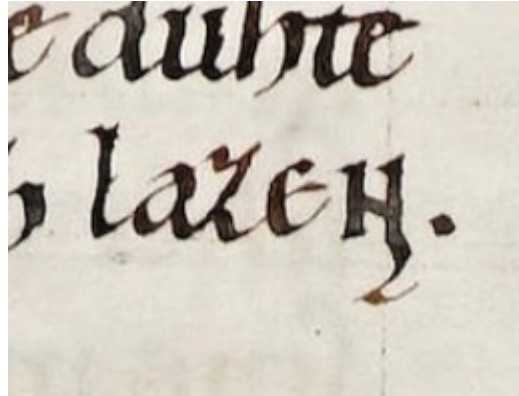 duhte
lazen.